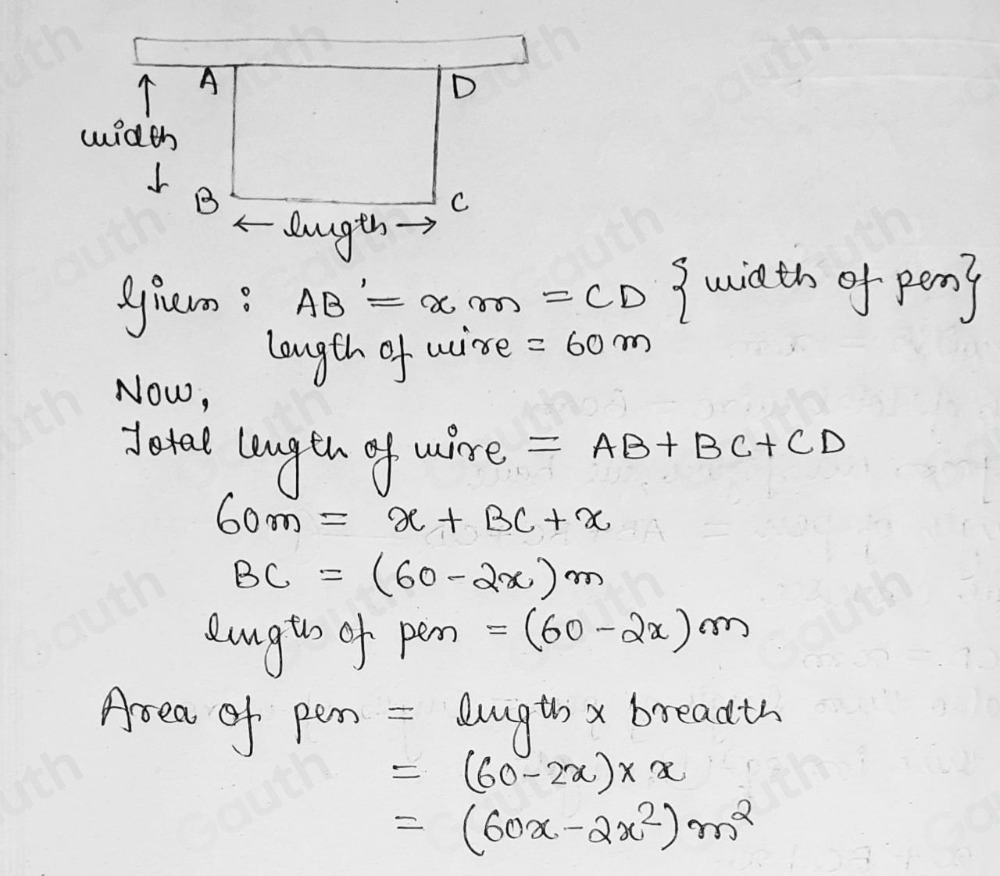 A D
width
B C
← length →
Given : AB = x m = CD { width of pen}
length of wire = 60 m
Now,
Total length of wire = AB + BC + CD
60m = x + BC + x
BC = (60 - 2x) m
length of pen = (60 - 2x) m
Area of pen = length x breadth
= (60 - 2x) x x
= (60x - 2x²) m²
Gauth